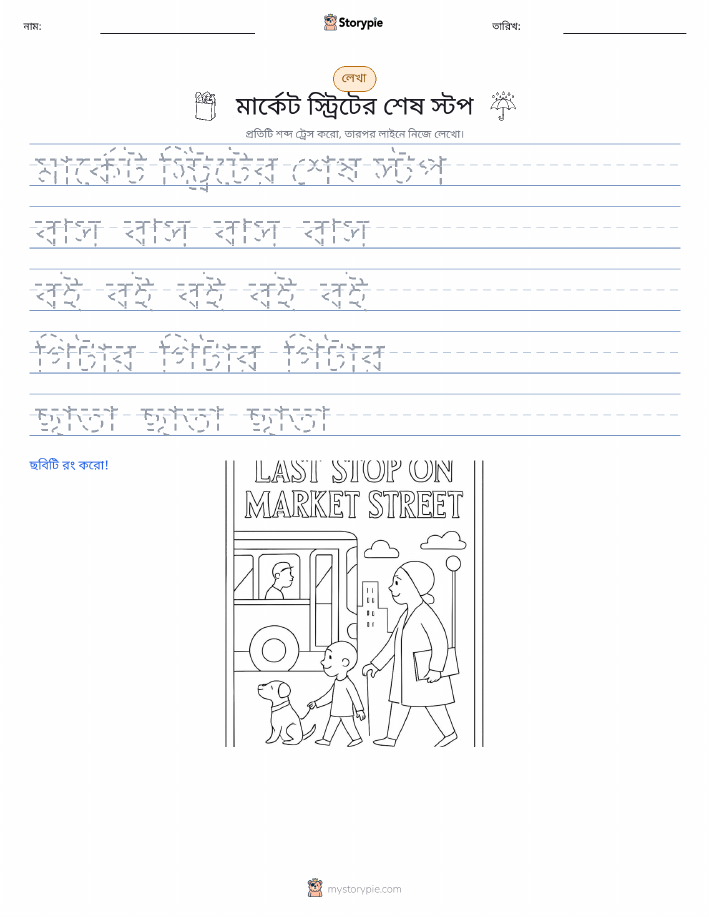 নাম:
Storypie
তারিখ:
লেখা
মার্কেট স্ট্রিটের শেষ স্টপ
প্রতিটি শব্দ ট্রেস করো, তারপর লাইনে নিজে লেখো।
মার্কেট স্ট্রিটের শেষ স্টপ
বাস বাস বাস বাস
বই বই বই বই বই
গিটার গিটার গিটার
ছাতা ছাতা ছাতা
ছবিটি রং করো!
LAST STOP ON
MARKET STREET
mystorypie.com